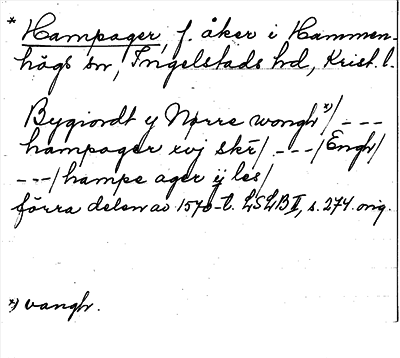 * Hampager, f. åker i Hammen-
högs sn, Ingelstads hd, Krist. l.
Bygiordt y Nørre wongh *)/ ---
hampager xvj skr/ ---/Engh/
---/hampe ager ij les/
förra delen av 1570-t. LSLB II, s. 274. orig.
*) vangh.